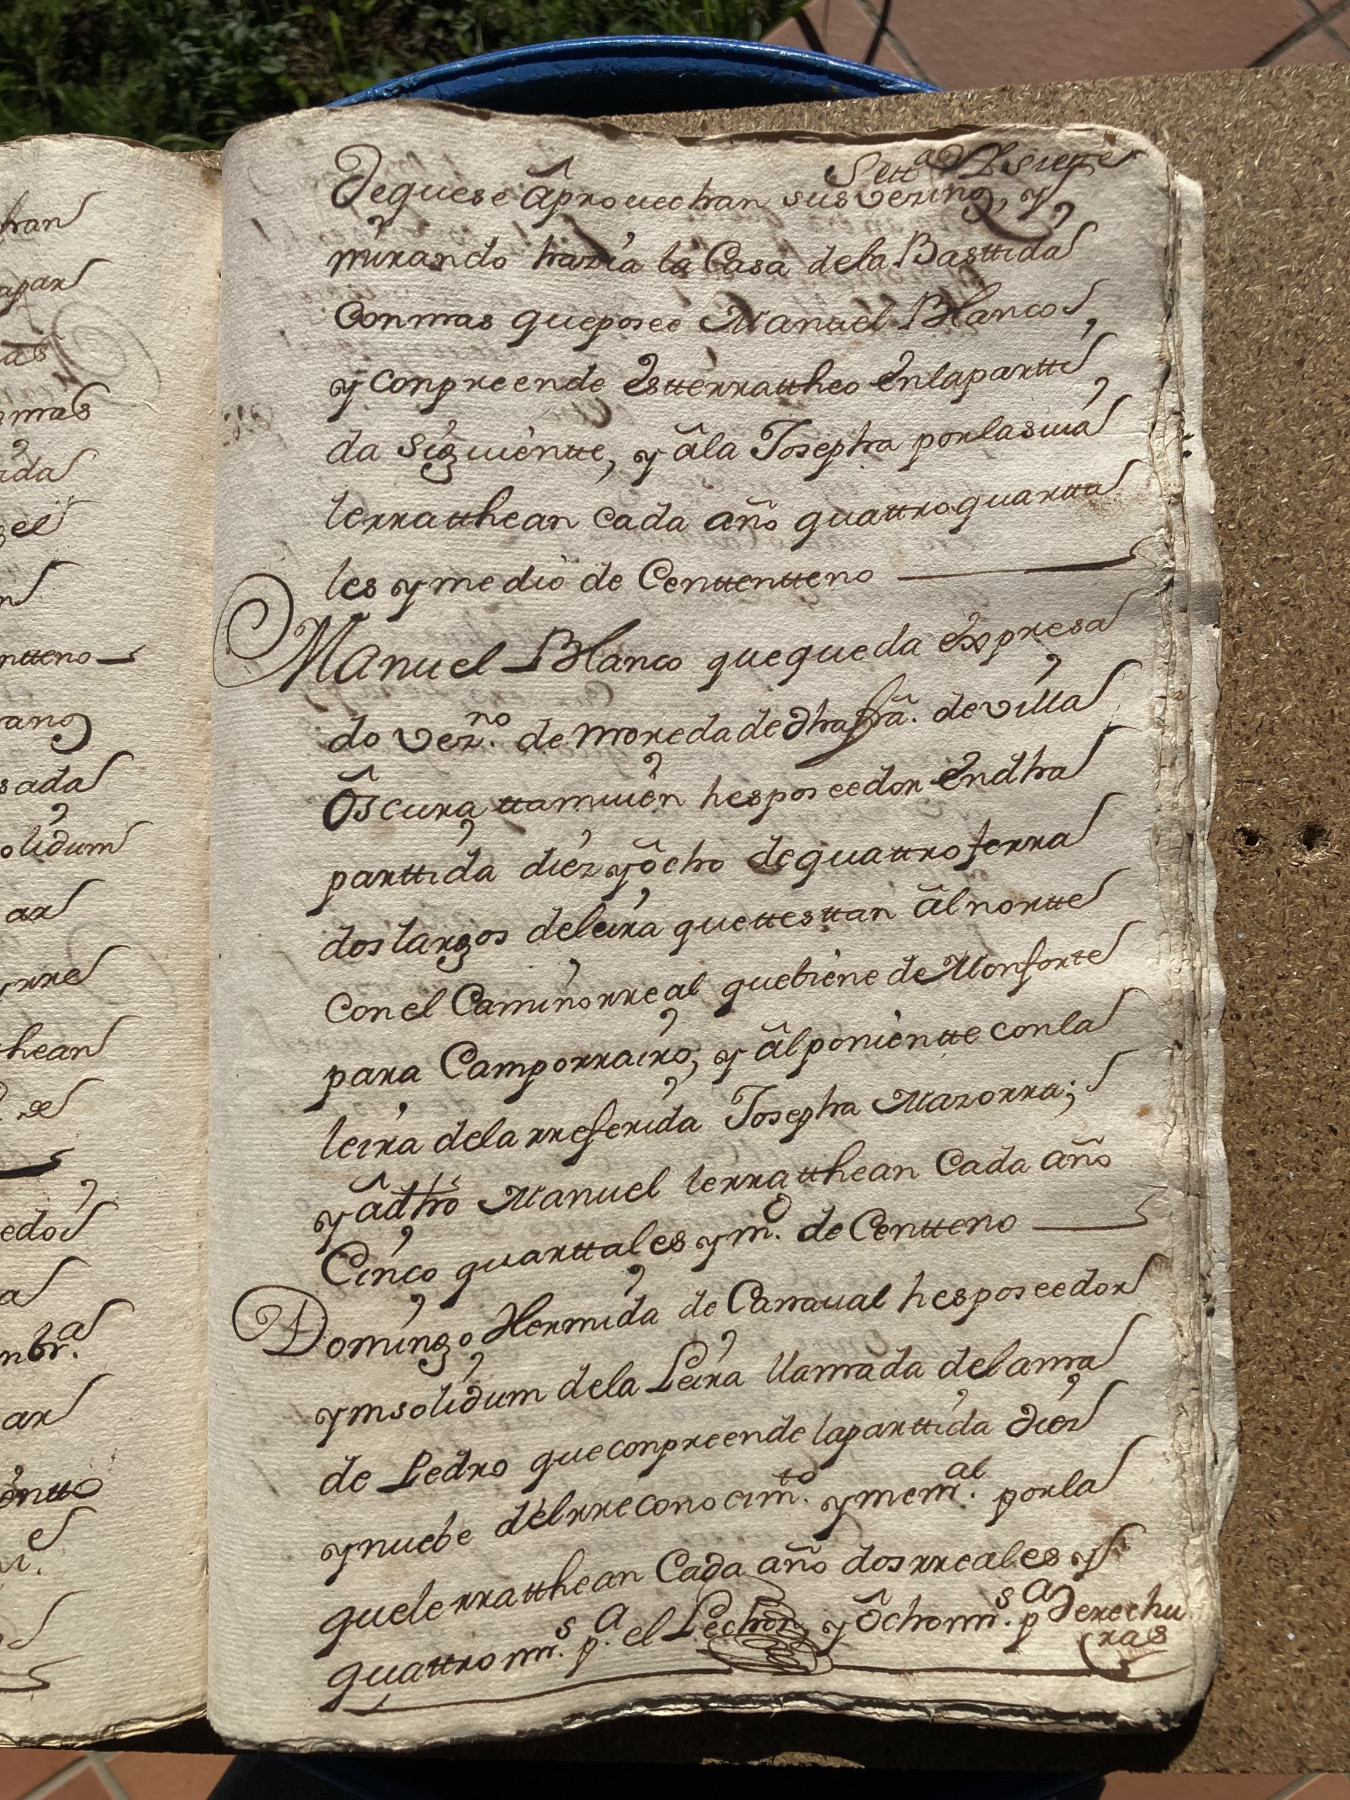 han
apar
as
mas
ida
el
n
ntteno
ranos
sada
olidum
ar
rre
hean
de
edor
a
mbr.ª
ar
entto
Sett.ª y siette
de que se âprouechan sus vezinos, y
mirando hazia la Casa de la Basttida
Con mas que posee Manuel Blanco,
y conpreende estte rrattheo en la partti
da siguientte, y âla Josepha por la suia
le rratthean cada año quattro quartta
les y medio de Centtentteno
Manuel Blanco que queda expresa
do vez.no de moreda de dha frã. de villa
ôscura ttamuien hes poseedor en dha
parttida diez y ôcho de quattro ferra
dos largos de leira que ttesttan âl nortte
con el Camino rreal que biene de Monforte
para Camporrairo, y âl ponientte con la
leira de la rreferida Josepha Mazorra;
y â dhô Manuel le rratthean Cada año
Cinco quarttales y m.o de Centteno
Domingo Hermida de Carraual hes poseedor
yn solidum de la Leira llamada de lama
de Pedro que conpreende la parttida diez
y nuebe dêl rreconocim.to y mem.al por la
que le rratthean Cada año dos rreales y
quattro mrs. p.a el Lechon, y ôcho mrs. p.a derechu
ras